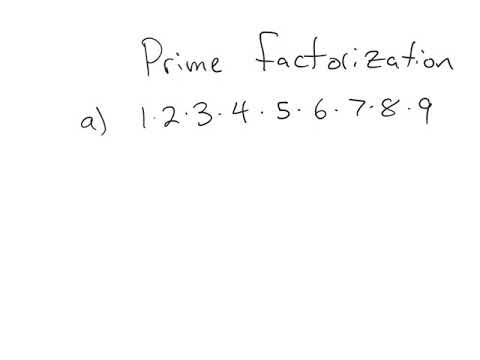 Prime Factorization
a) 1·2·3·4·5·6·7·8·9